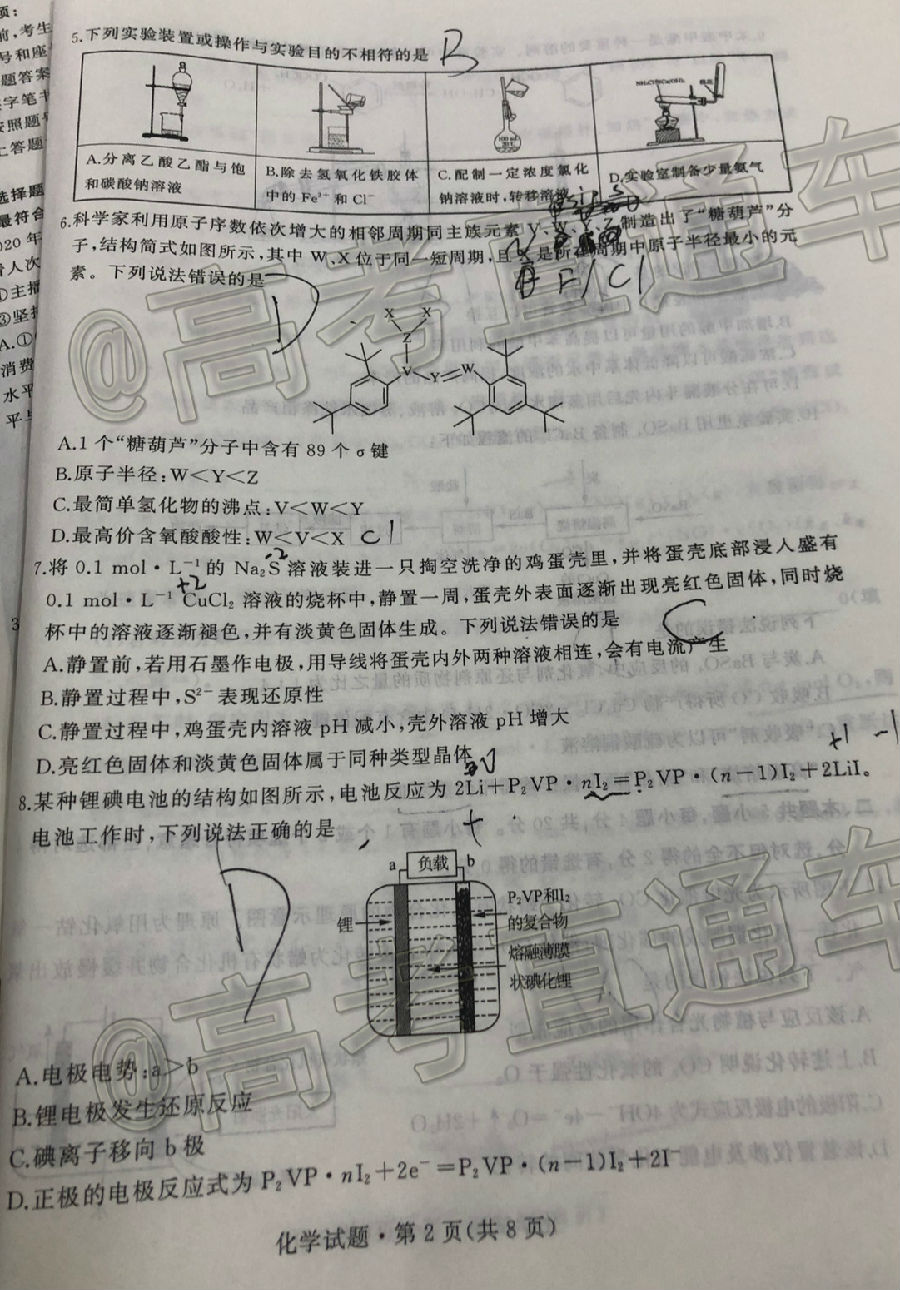 项:
前,考生
号和座
题答案
字笔书
按照题
上答题
选择题
最符合
020 年
人次
①主播
③坚持
A.①
消费
水平
平与
3
5.下列实验装置或操作与实验目的不相符的是 B
A.分离乙酸乙酯与饱和碳酸钠溶液
B.除去氢氧化铁胶体中的 Fe³⁺ 和 Cl⁻
C.配制一定浓度氯化钠溶液时,转移溶液
D.实验室制备少量氨气
6.科学家利用原子序数依次增大的相邻周期同主族元素 V、 制造出了“糖葫芦”分
子,结构简式如图所示,其中 W、X 位于同一短周期,且 X 是所在周期中原子半径最小的元
素。下列说法错误的是 D
F/Cl
X X
Z
V Y=W
A.1 个“糖葫芦”分子中含有 89 个 σ 键
B.原子半径:W<Y<Z
C.最简单氢化物的沸点:V<W<Y
D.最高价含氧酸酸性:W<V<X Cl
-2
7.将 0.1 mol·L⁻¹ 的 Na₂S 溶液装进一只掏空洗净的鸡蛋壳里,并将蛋壳底部浸入盛有
+2
0.1 mol·L⁻¹ CuCl₂ 溶液的烧杯中,静置一周,蛋壳外表面逐渐出现亮红色固体,同时烧
杯中的溶液逐渐褪色,并有淡黄色固体生成。下列说法错误的是 C
A.静置前,若用石墨作电极,用导线将蛋壳内外两种溶液相连,会有电流产生
B.静置过程中,S²⁻ 表现还原性
C.静置过程中,鸡蛋壳内溶液 pH 减小,壳外溶液 pH 增大
D.亮红色固体和淡黄色固体属于同种类型晶体
+1 -1
8.某种锂碘电池的结构如图所示,电池反应为 2Li+P₂VP·nI₂=P₂VP·(n-1)I₂+2LiI。
电池工作时,下列说法正确的是 D
- +
a 负载 b
锂
P₂VP和I₂
的复合物
熔融薄膜
状碘化锂
A.电极电势:a>b
B.锂电极发生还原反应
C.碘离子移向 b 极
D.正极的电极反应式为 P₂VP·nI₂+2e⁻=P₂VP·(n-1)I₂+2I⁻
化学试题·第 2 页(共 8 页)
@高考直通车
@高考直通车